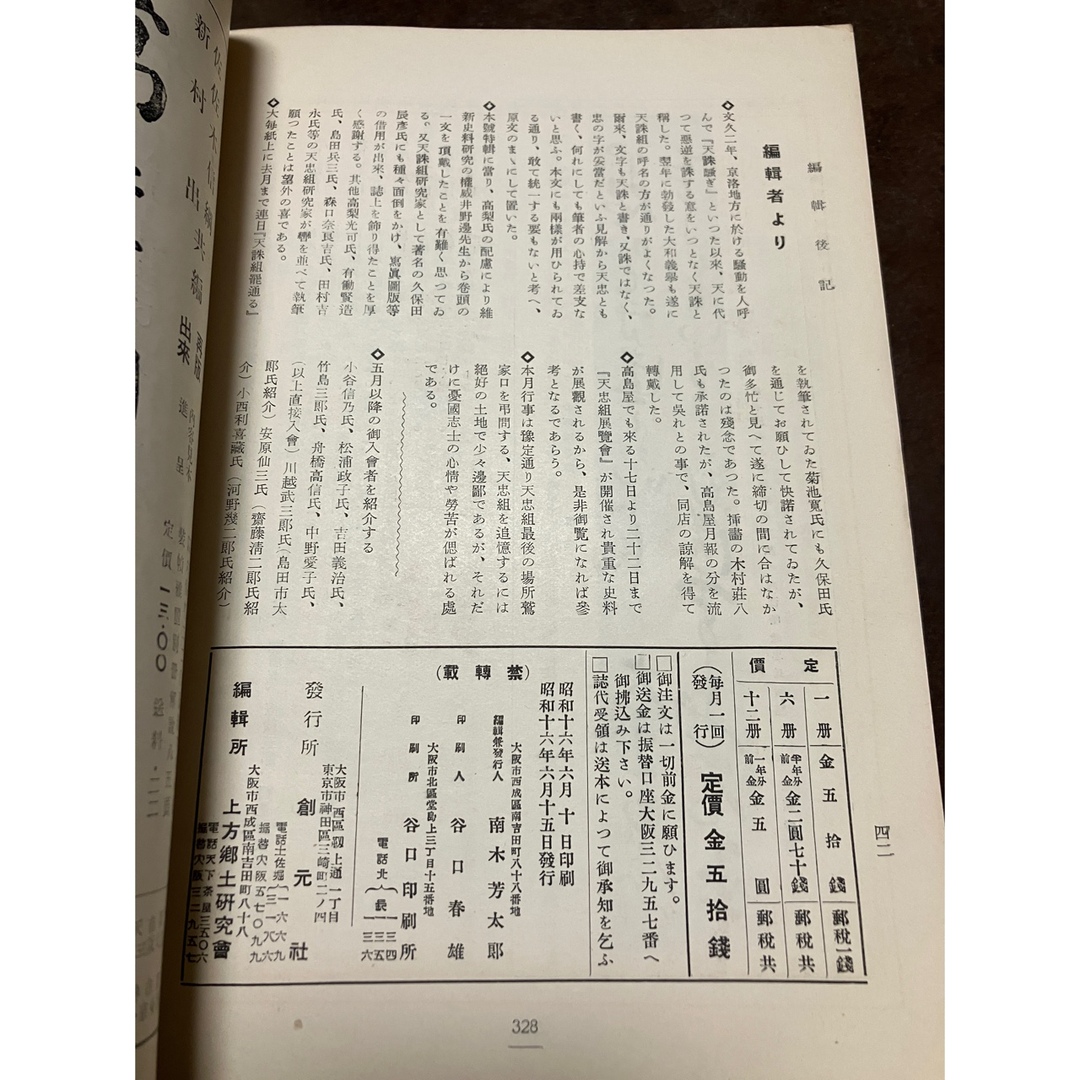 編輯後記
編輯者より
◇文久二年、京洛地方に於ける騷動を人呼
んで『天誅騷ぎ』といつた以來、天に代
つて惡逆を誅する意をいつとなく天誅と
稱した。翌年に勃發した大和義擧も遂に
天誅組の呼名の方が通りがよくなつた。
爾來、文字も天誅と書き、又誅ではなく、
忠の字が妥當だといふ見解から天忠とも
書く、何れにしても筆者の心持で差支な
いと思ふ。本文にも兩樣が用ひられてゐ
る通り、敢て統一する要もないと考へ、
原文のまゝにして置いた。
◇本號特輯に當り、高梨氏の配慮により維
新史料研究の權威井野邊先生から卷頭の
一文を頂戴したことを有難く思つてゐ
る。又天誅組研究家として著名の久保田
辰彦氏にも種々面倒をかけ、寫眞圖版等
の借用が出來、誌上を飾り得たことを厚
く感謝する。其他高梨光司氏、有働賢造
氏、島田兵三氏、森口奈良吉氏、田村吉
永氏等の天忠組研究家が轡を並べて執筆
願つたことは望外の喜である。
◇大每紙上に去月まで連日『天誅組罷通る』
を執筆されてゐた菊池寬氏にも久保田氏
を通じてお願ひして快諾されてゐたが、
御多忙と見へて遂に締切の間に合はなか
つたのは殘念であつた。挿畵の木村莊八
氏も承諾されたが、高島屋月報の分を流
用して吳れとの事で、同店の諒解を得て
轉戴した。
◇高島屋でも來る十七日より二十二日まで
『天忠組展覽會』が開催され貴重な史料
が展觀されるから、是非御覽になれば參
考となるであらう。
◇本月行事は豫定通り天忠組最後の場所鷲
家口を弔問する、天忠組を追憶するには
絕好の土地で少々邊鄙であるが、それだ
けに憂國志士の心情や勞苦が偲ばれる處
である。
◇五月以降の御入會者を紹介する
小谷信乃氏、松浦政子氏、吉田義治氏、
竹島三郞氏、舟橋高信氏、中野愛子氏、
(以上直接入會)川越武三郞氏(島田市太
郞氏紹介)安原仙三氏(齋藤淸二郞氏紹
介)小西利喜藏氏(河野幾二郞氏紹介)
四二
定價
一册 金五拾錢 郵稅一錢
六册 半年分前金 金二圓七十錢 郵稅共
十二册 一年分前金 金五圓 郵稅共
(每月一回發行) 定價金五拾錢
□御注文は一切前金に願ひます。
□御送金は振替口座大阪三二九五七番へ
御拂込み下さい。
□誌代受領は送本によつて御承知を乞ふ
昭和十六年六月十日印刷
昭和十六年六月十五日發行
(禁轉載)
大阪市西成區南吉田町八十八番地
編輯兼發行人 南木芳太郞
印刷人 谷口春雄
大阪市北區堂島上三丁目十五番地
印刷所 谷口印刷所
發行所 創元社
大阪市西區靱上通一丁目
東京市神田區三崎町二ノ四
編輯所 上方鄕土硏究會
大阪市西成區南吉田町八十八
328
新村出共編
出來
定價一三・〇〇